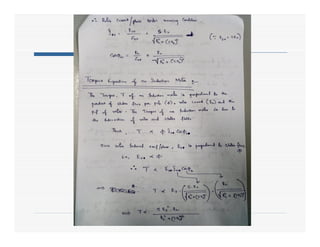 ∴ Rotor current/phase under running condition
I₂ᵣ = E₂ᵣ/Z₂ᵣ = S E₂/√(R₂² + (S X₂)²) (∵ E₂ᵣ = S E₂)
Cosφ₂ᵣ = R₂/Z₂ᵣ = R₂/√(R₂² + (S X₂)²)
Torque Equation of an Induction Motor
The Torque, T of an Induction motor is proportional to the
product of stator flux per pole (φ), rotor current (I₂ᵣ) and the
p.f of rotor. The Torque of an induction motor is due to
the interaction of rotor and stator fields.
Thus, T ∝ φ I₂ᵣ Cosφ₂ᵣ
Since rotor induced emf/phase, E₂ is proportional to stator flux φ
i.e., E₂ ∝ φ
∴ T ∝ E₂ I₂ᵣ Cosφ₂ᵣ
⇒ T ∝ E₂ · (S E₂/√(R₂² + (S X₂)²)) · (R₂/√(R₂² + (S X₂)²))
⇒ T ∝ S E₂² · R₂/(R₂² + (S X₂)²)